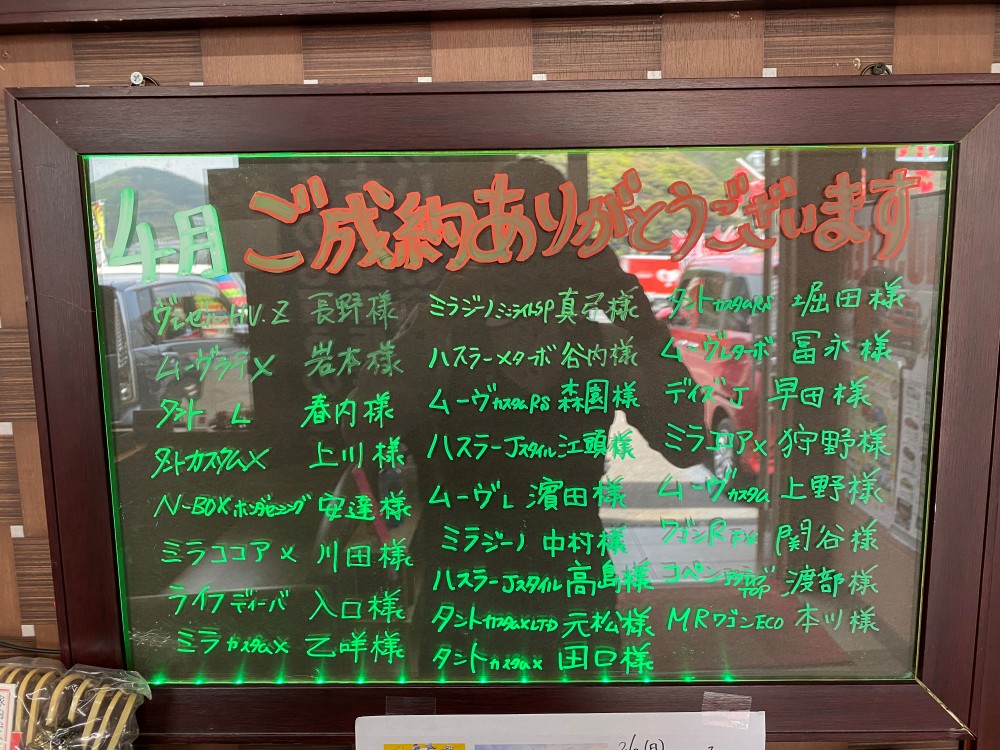 4月 ご成約ありがとうございます
ヴェゼルHV.Z 長野様
ムーヴラテX 岩本様
タント L 春内様
タントカスタムX 上川様
N-BOXホンダセンシング 安達様
ミラココアX 川田様
ライフディーバ 入口様
ミラカスタムX 乙咩様
ミラジーノミニライトSP 真弓様
ハスラーXターボ 谷内様
ムーヴカスタムRS 森園様
ハスラーJスタイル 江頭様
ムーヴL 濱田様
ミラジーノ 中村様
ハスラーJスタイル 高島様
タントカスタムXLTD 元松様
タントカスタムX 田口様
タントカスタムRS 堀田様
ムーヴLターボ 冨永様
デイズJ 早田様
ミラココアX 狩野様
ムーヴカスタム 上野様
ワゴンR FX 関谷様
コペン 渡部様
MRワゴンECO 本川様
(日)